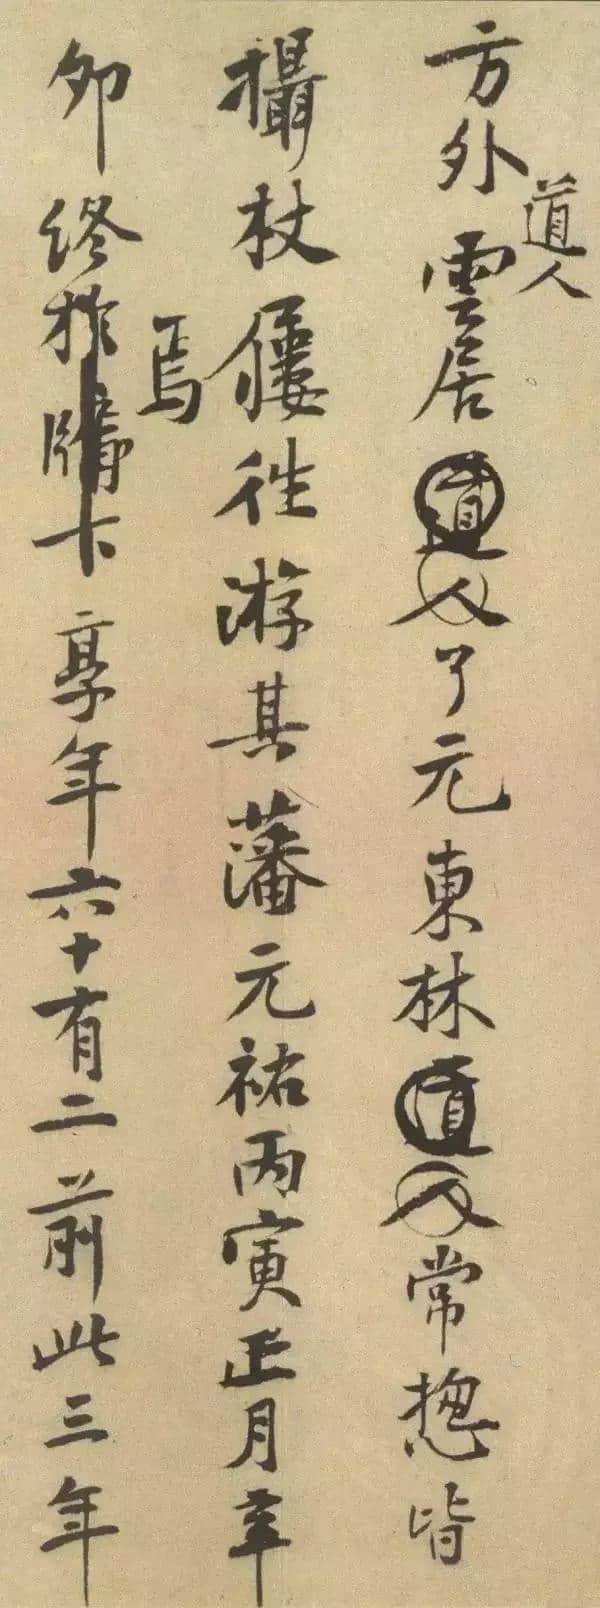 方外道人雲居道人了元東林道人常揔皆
攝杖屨往游其藩元祐丙寅正月辛
卯終於焉牖下享年六十有二前此三年